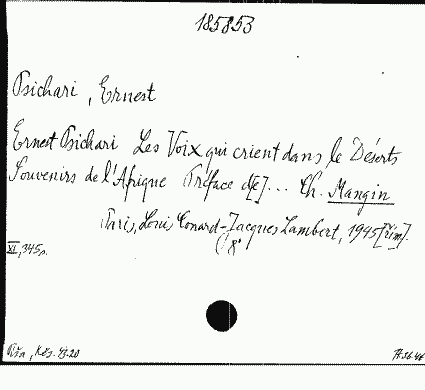 185853
Psichari, Ernest
Ernest Psichari Les Voix qui crient dans le Désert
Souvenirs de l'Afrique Préface d[e]... Ch. Mangin
Paris, Louis Conard-Jacques Lambert, 1945 [řím].
8°
XI, 345 s.